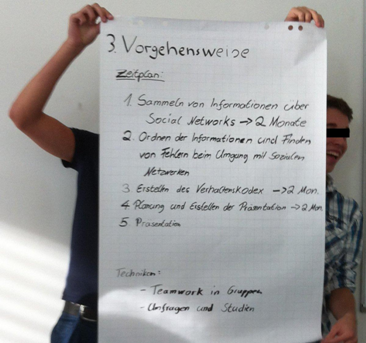 3. Vorgehensweise
Zeitplan:
1. Sammeln von Informationen über
Social Networks → 2 Monate
2. Ordnen der Informationen und Finden
von Fehlern beim Umgang mit Sozialen
Netzwerken
3 Erstellen des Verhaltenskodex → 2 Mon.
4 Planung und Erstellen der Präsentation → 2 Mon.
5. Präsentation
Techniken:
- Teamwork in Gruppen
- Umfragen und Studien